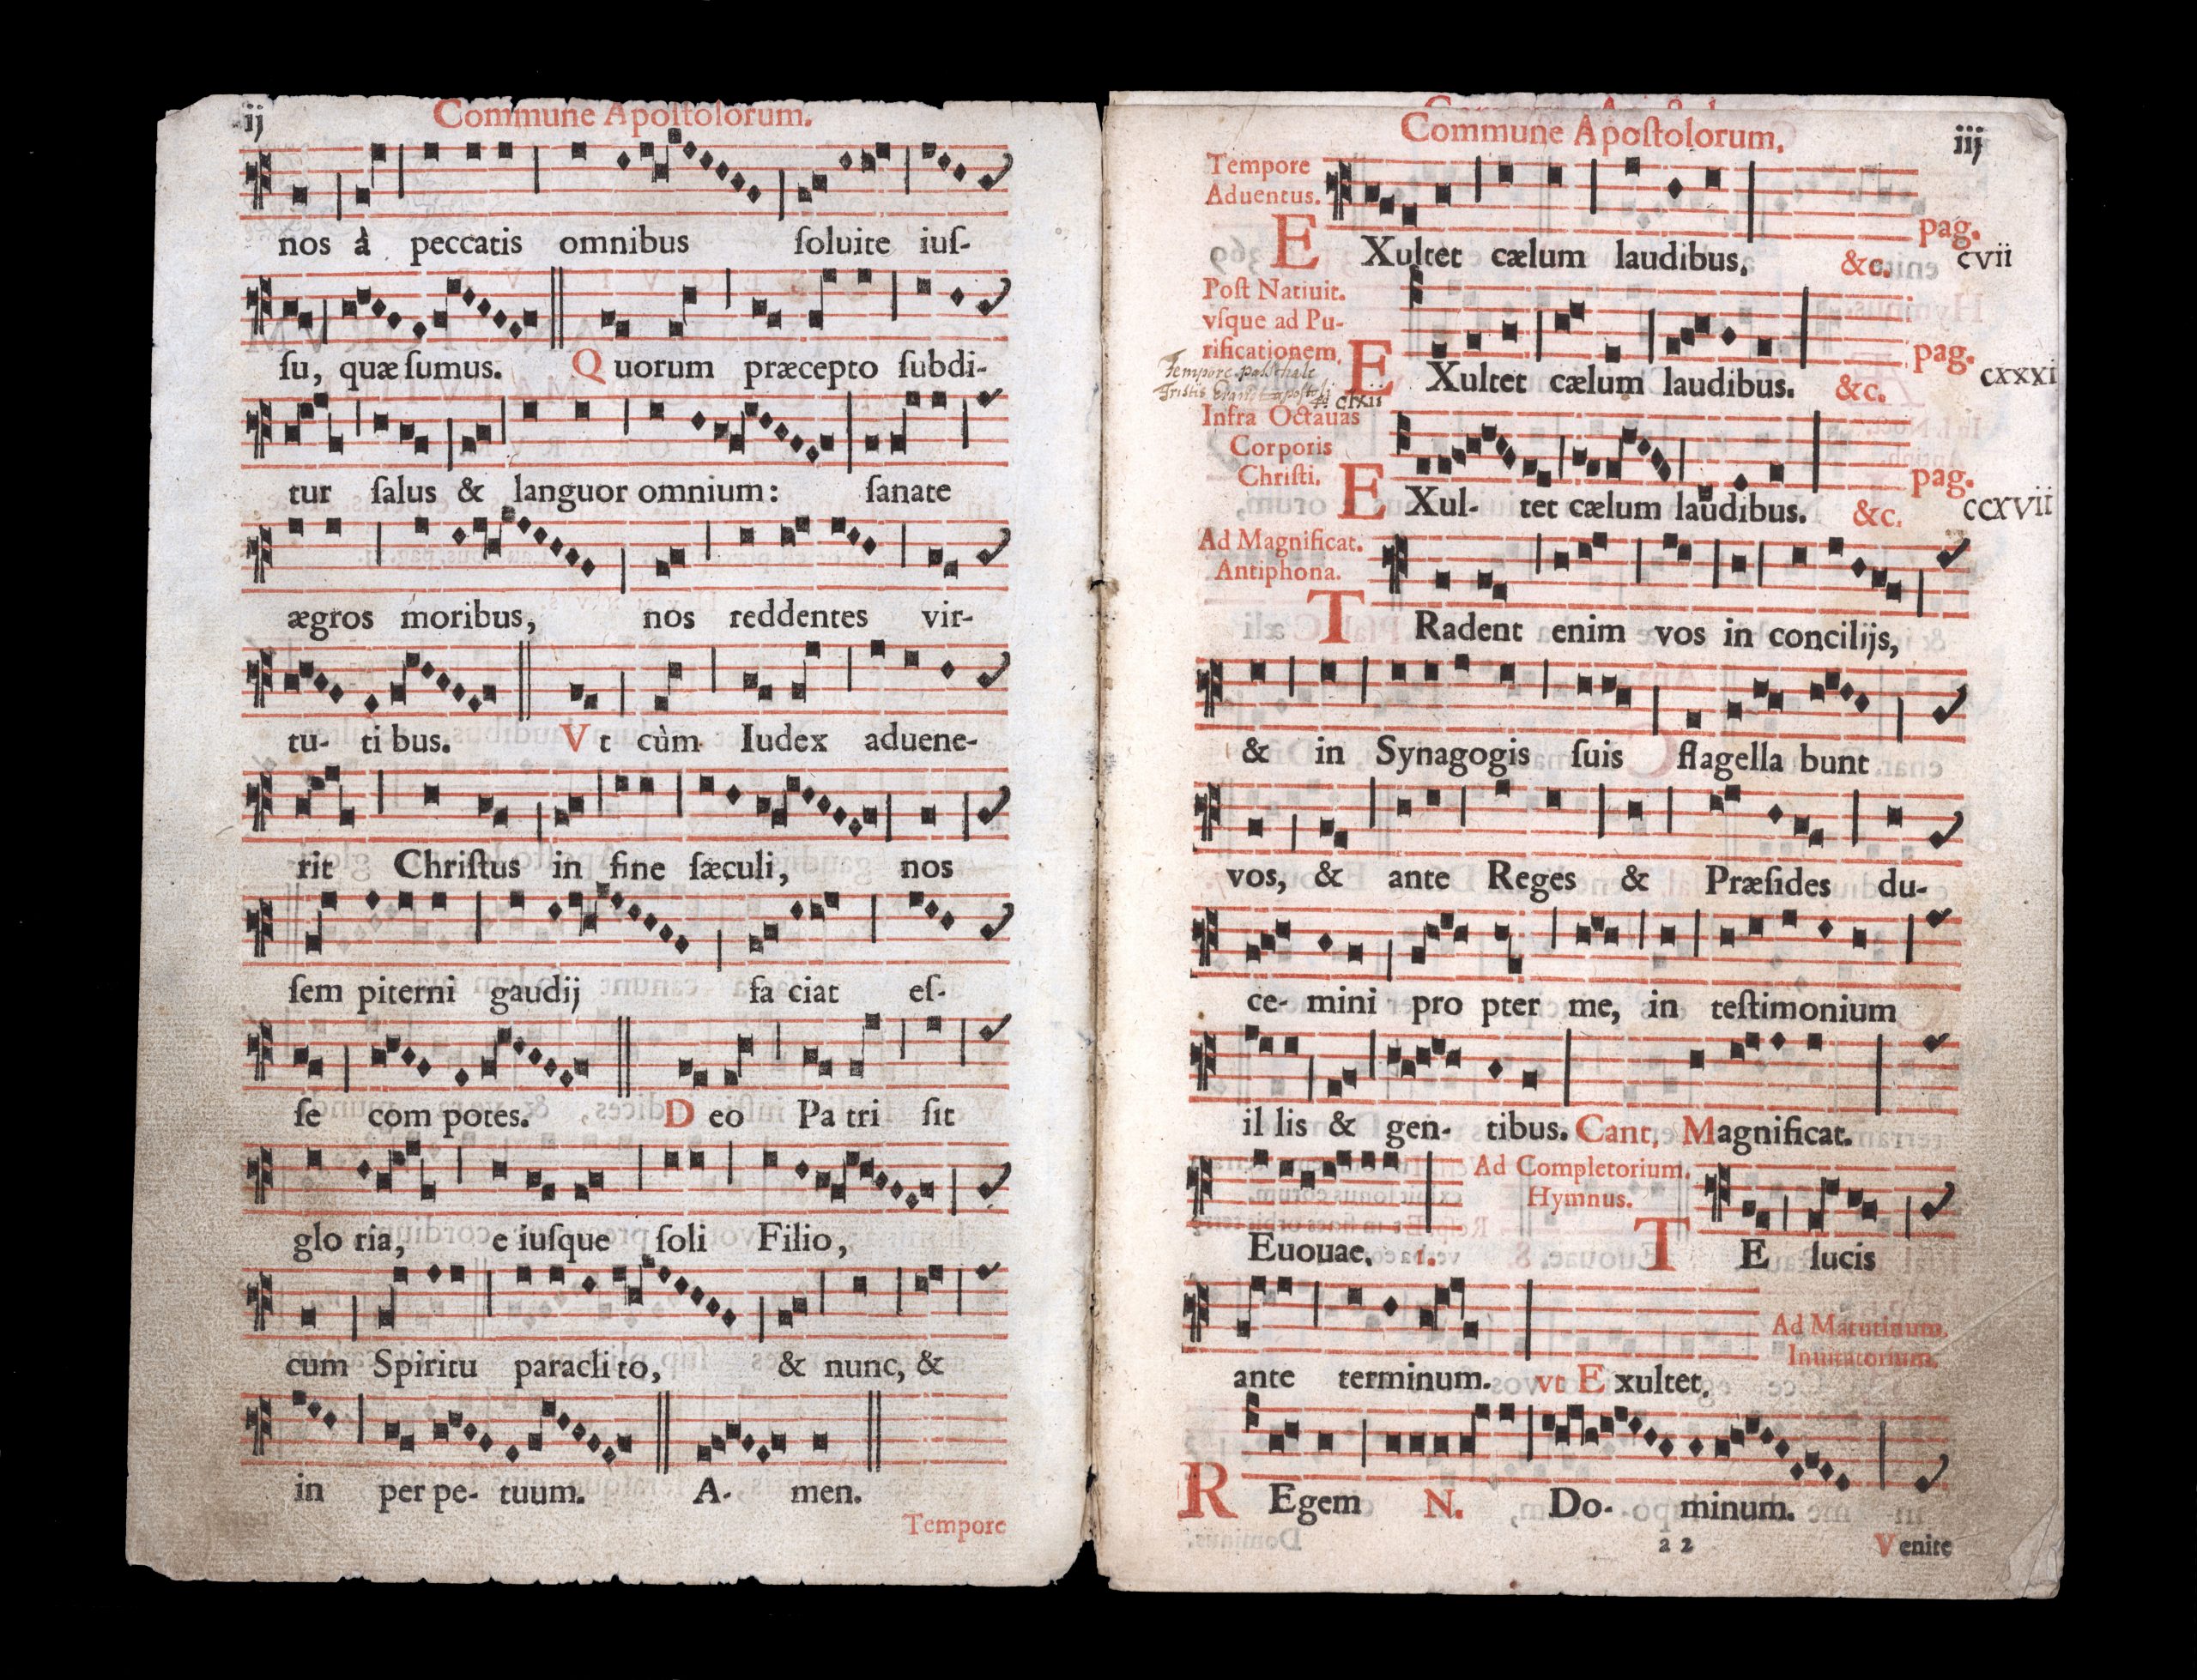 ij
Commune Apostolorum.
nos à peccatis omnibus ſoluite iuſ-
ſu, quæ ſumus. Quorum præcepto ſubdi-
tur ſalus & languor omnium: ſanate
ægros moribus, nos reddentes vir-
tu- ti bus. Vt cùm Iudex aduene-
rit Chriſtus in fine ſæculi, nos
ſem piterni gaudij fa ciat eſ-
ſe com potes. Deo Pa tri ſit
glo ria, e iuſque ſoli Filio,
cum Spiritu paracli to, & nunc, &
in per pe- tuum. A- men.
Tempore
Commune Apoſtolorum.
iij
Tempore
Aduentus.
EXultet cælum laudibus. &c. pag. cvii
Poſt Natiuit.
vſque ad Pu-
rificationem.
EXultet cælum laudibus. &c. pag. cxxxi
Tempore paschale
Tristes clxii
Infra Octauas
Corporis
Chriſti.
EXul- tet cælum laudibus. &c. pag. ccxvii
Ad Magnificat.
Antiphona.
TRadent enim vos in concilijs,
& in Synagogis ſuis flagella bunt
vos, & ante Reges & Præſides du-
ce- mini pro pter me, in teſtimonium
il lis & gen- tibus. Cant. Magnificat.
Euouae. 1.
Ad Completorium.
Hymnus.
TE lucis
ante terminum. vt Exultet.
Ad Matutinum.
Inuitatorium.
REgem N. Do- minum.
a 2
Venite